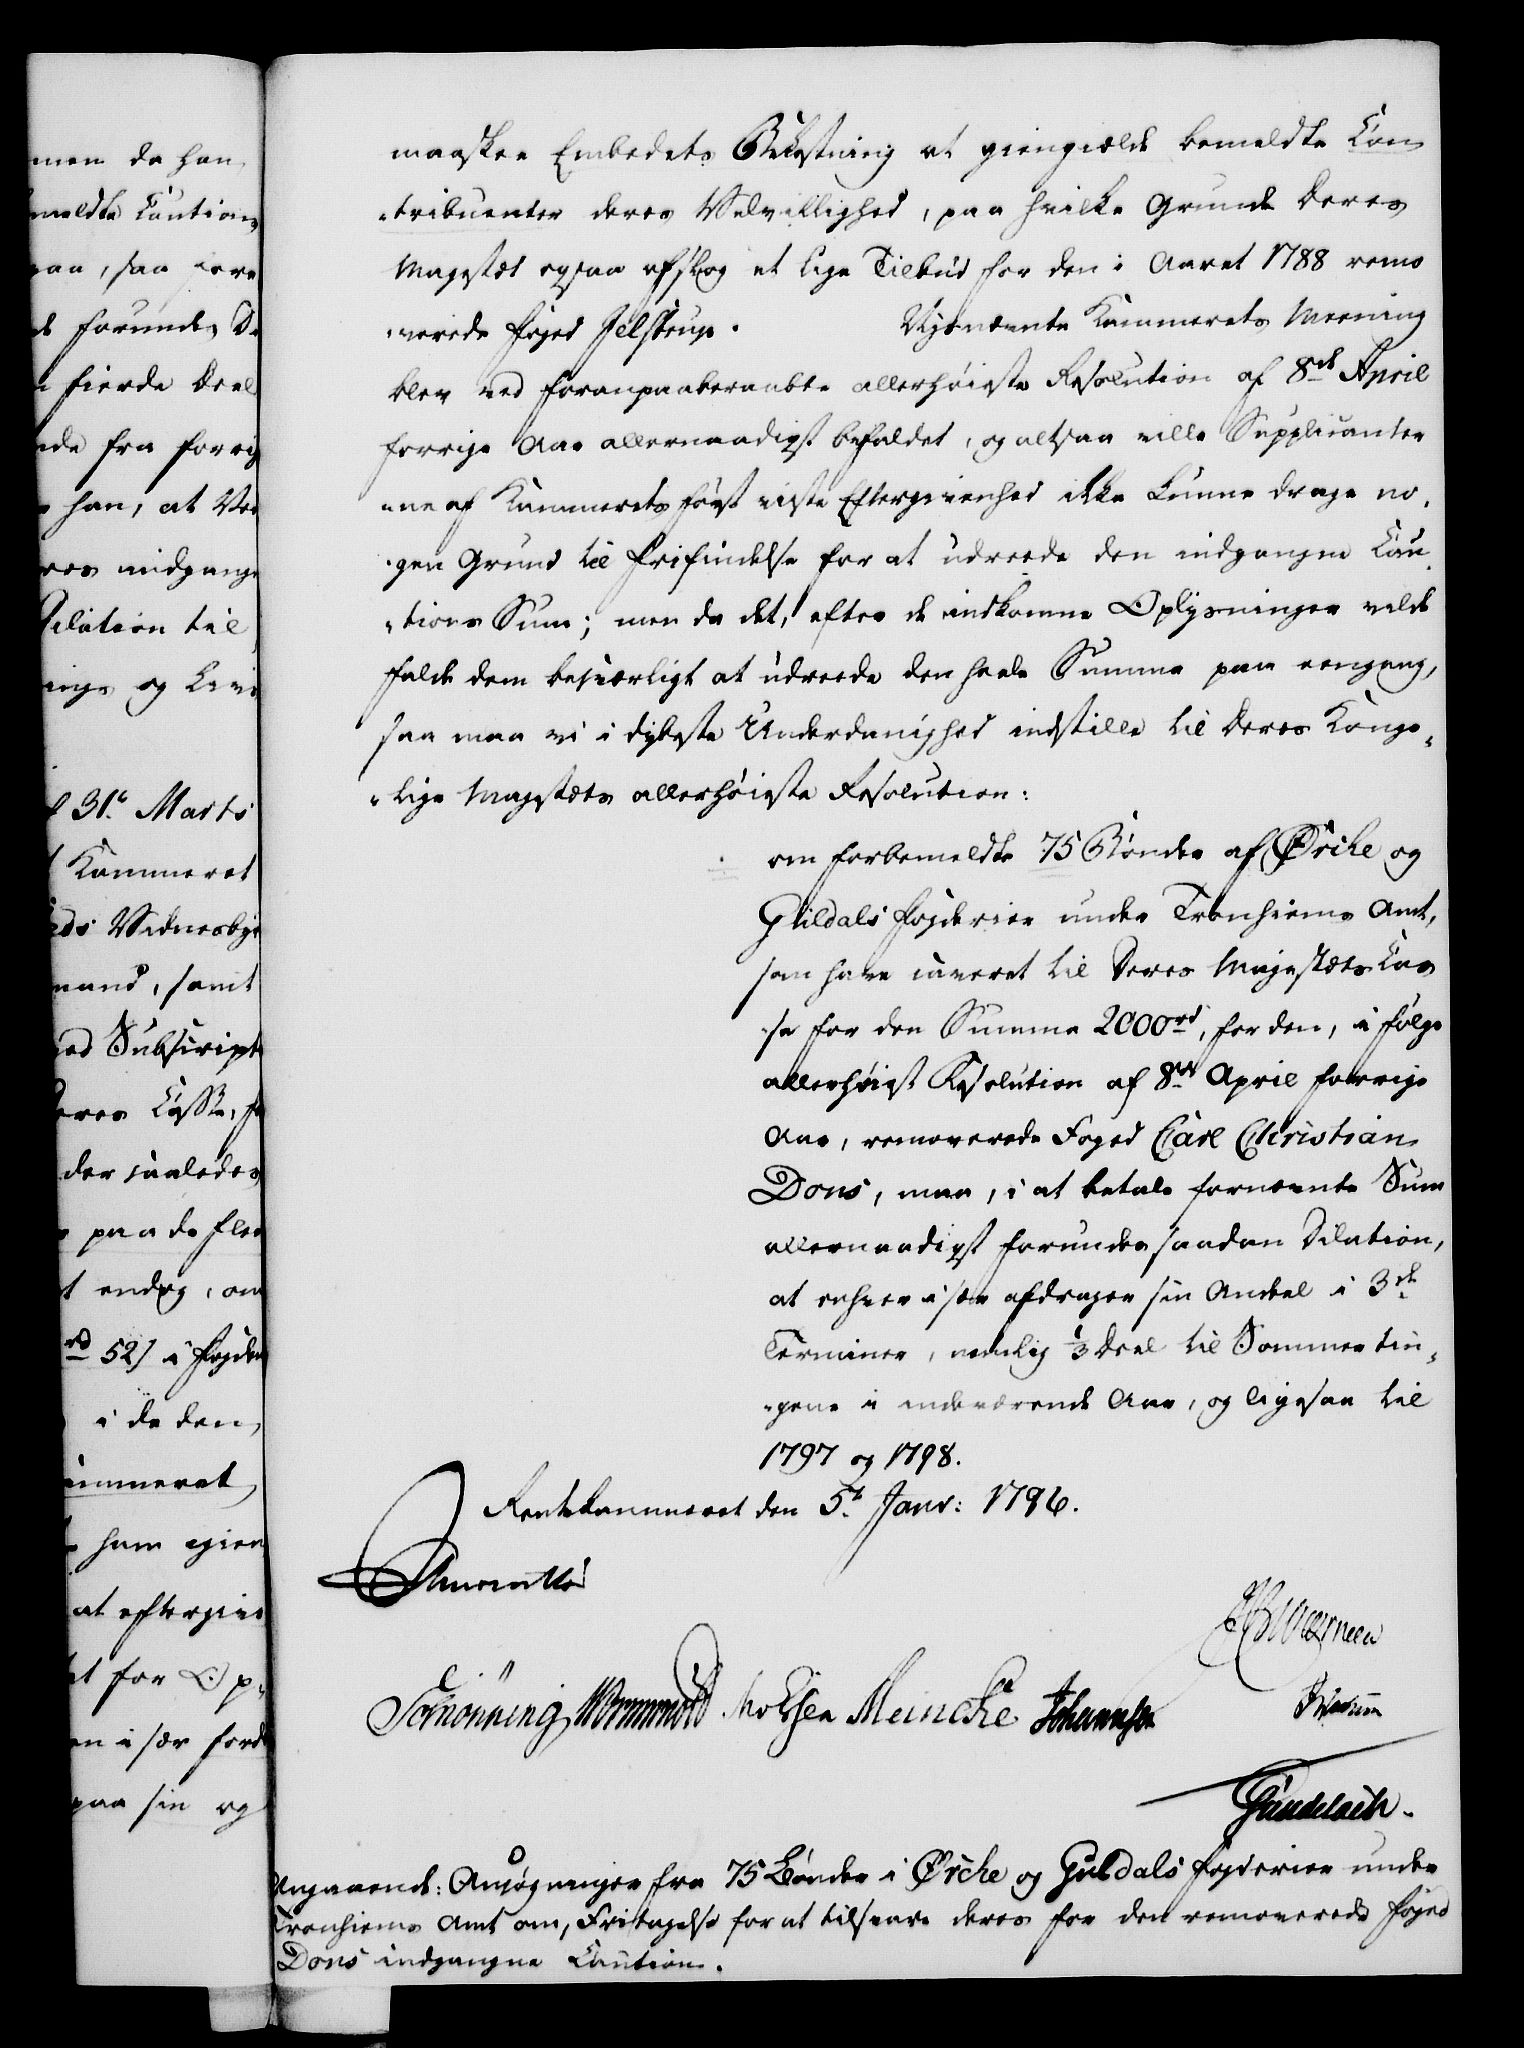 men da han
meldte Cautions
gaa, saa
forundes De
fierde Deel
nde fra forrig
han, at Ved
res indgangne
Dilation til
inge og
31t Marts
Kammeret
eds Vidnesbyr
mand, samt
ed Subscript
eres Casse, fo
der saaledes
paa de fleer
endog, om
rd 52 s i Fogder
i de den
ammeret
ham igien
at eftergive
et for Op-
en i sær ford
paa sin og
maaskee Embedets Bekostning at giengielde bemeldte Con-
-tribuenter deres Velvillighed, paa hvilke Grunde Deres
Majestæt ogsaa afslog et lige Tilbud for den i Aaret 1788 remo
-verede Foged Jelstrup. Nysnævnte Kammerets Meening
blev ved foranpaaberaabte allerhøieste Resolution af 8de April
forrige Aar allernaadigst bifaldet, og altsaa ville Supplicanter
-ne af Kammerets først viste Eftergivenhed ikke kunne drage no-
-gen Grund til Frifindelse for at udreede den indgangne Cau-
-tions Sum; men da det, efter de indkomne Oplysninger vilde
falde dem besværligt at udreede den heele Summa paa eengang,
saa maa vi i dybeste Underdanighed indstille til Deres Konge-
-lige Majestæts allerhøieste Resolution:
om forbemeldte 75 Bønder af Ørche og
Guldals Fogderier under Tronhiems Amt,
som have caveret til Deres Majestæts Cas
-se for den Summa 2000rd, for den, i følge
allerhøiest Resolution af 8de April forrige
Aar, removerede Foged Carl Christian
Dons, maa, i at betale fornævnte Sum
allernaadigst forundes saadan Dilation,
at enhver i sær afdrager sin Andeel i 3de
Terminer, nemlig 1/3 Deel til Sommertin-
-gene i indeværende Aar, og ligesaa til
1797 og 1798.
Rentekammeret den 5t Janv: 1796.
Schønning Wormskiold Meincke Johannsen
Gundelach.
Angaaende: Ansøgninger fra 75 Bønder i Ørche og Guldals Fogderier under
Tronhiems Amt om, Fritagelse for at tilsvare deres for den removerede Foged
Dons indgangne Caution.